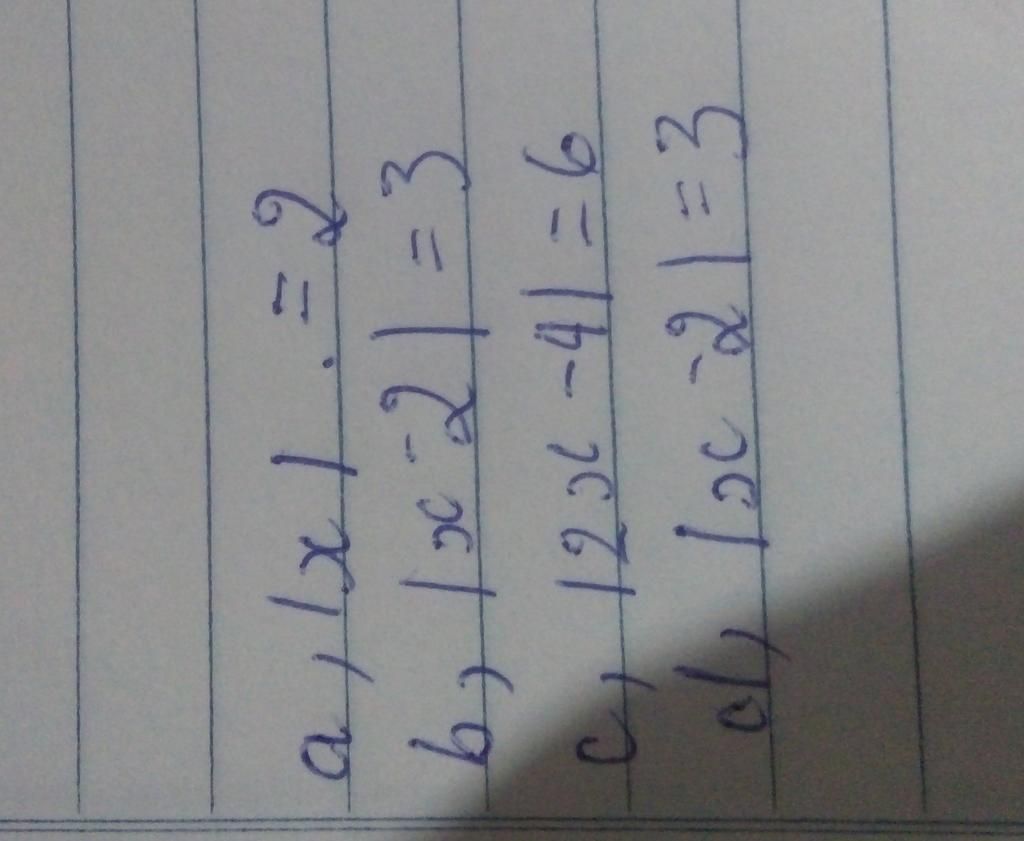 a, |x| . = 2
b, |x - 2| = 3
c, |2x - 4| = 6
d, |x - 2| = 3